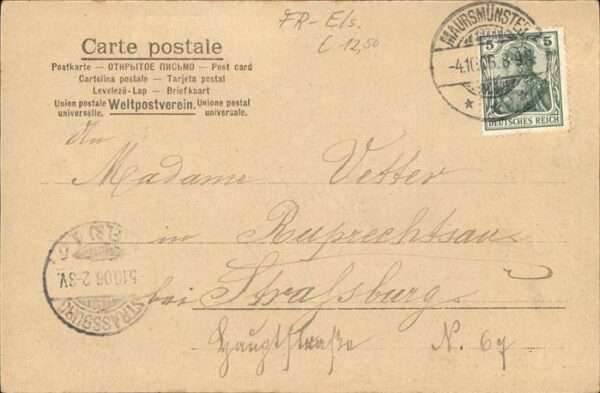 FR-Els.
L 12,50
Carte postale
Postkarte — ОТКРЫТОЕ ПИСЬМО — Post card
Cartolina postale — Tarjeta postal
Levelező-Lap — Briefkaart
Union postale universelle. Weltpostverein. Unione postale universale.
MAURSMÜNSTER
-4.10.06. 8-9
5 5
DEUTSCHES REICH
An
Madame Vetter
in Ruprechtsau
bei Straßburg
Hauptstraße N. 67
STRASSBURG
5.10.06.2-3V.